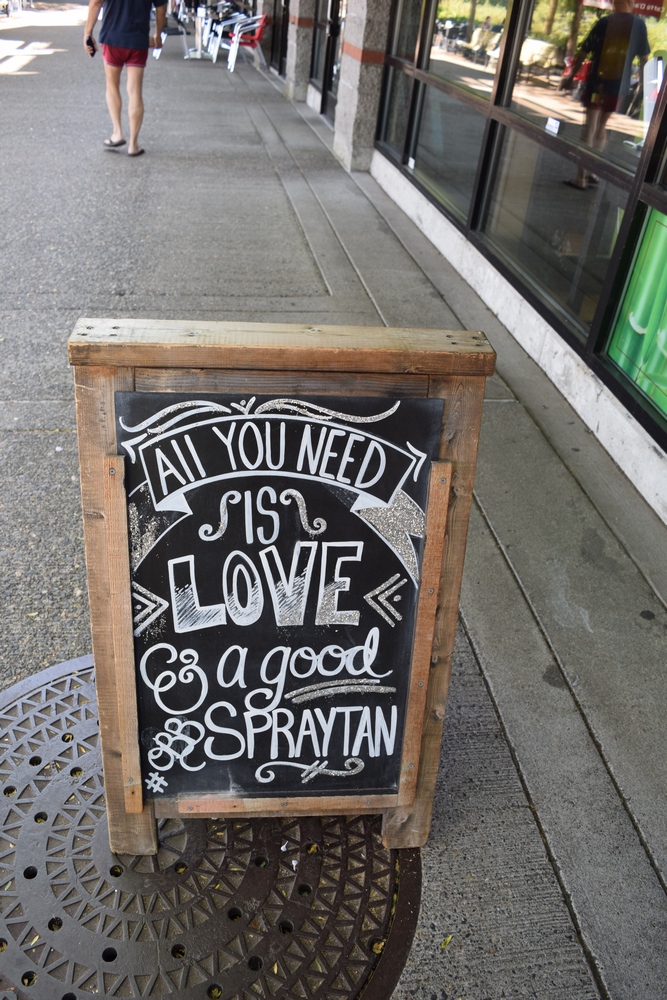 All YOU NEED
IS
LOVE
& a good
SPRAYTAN
#